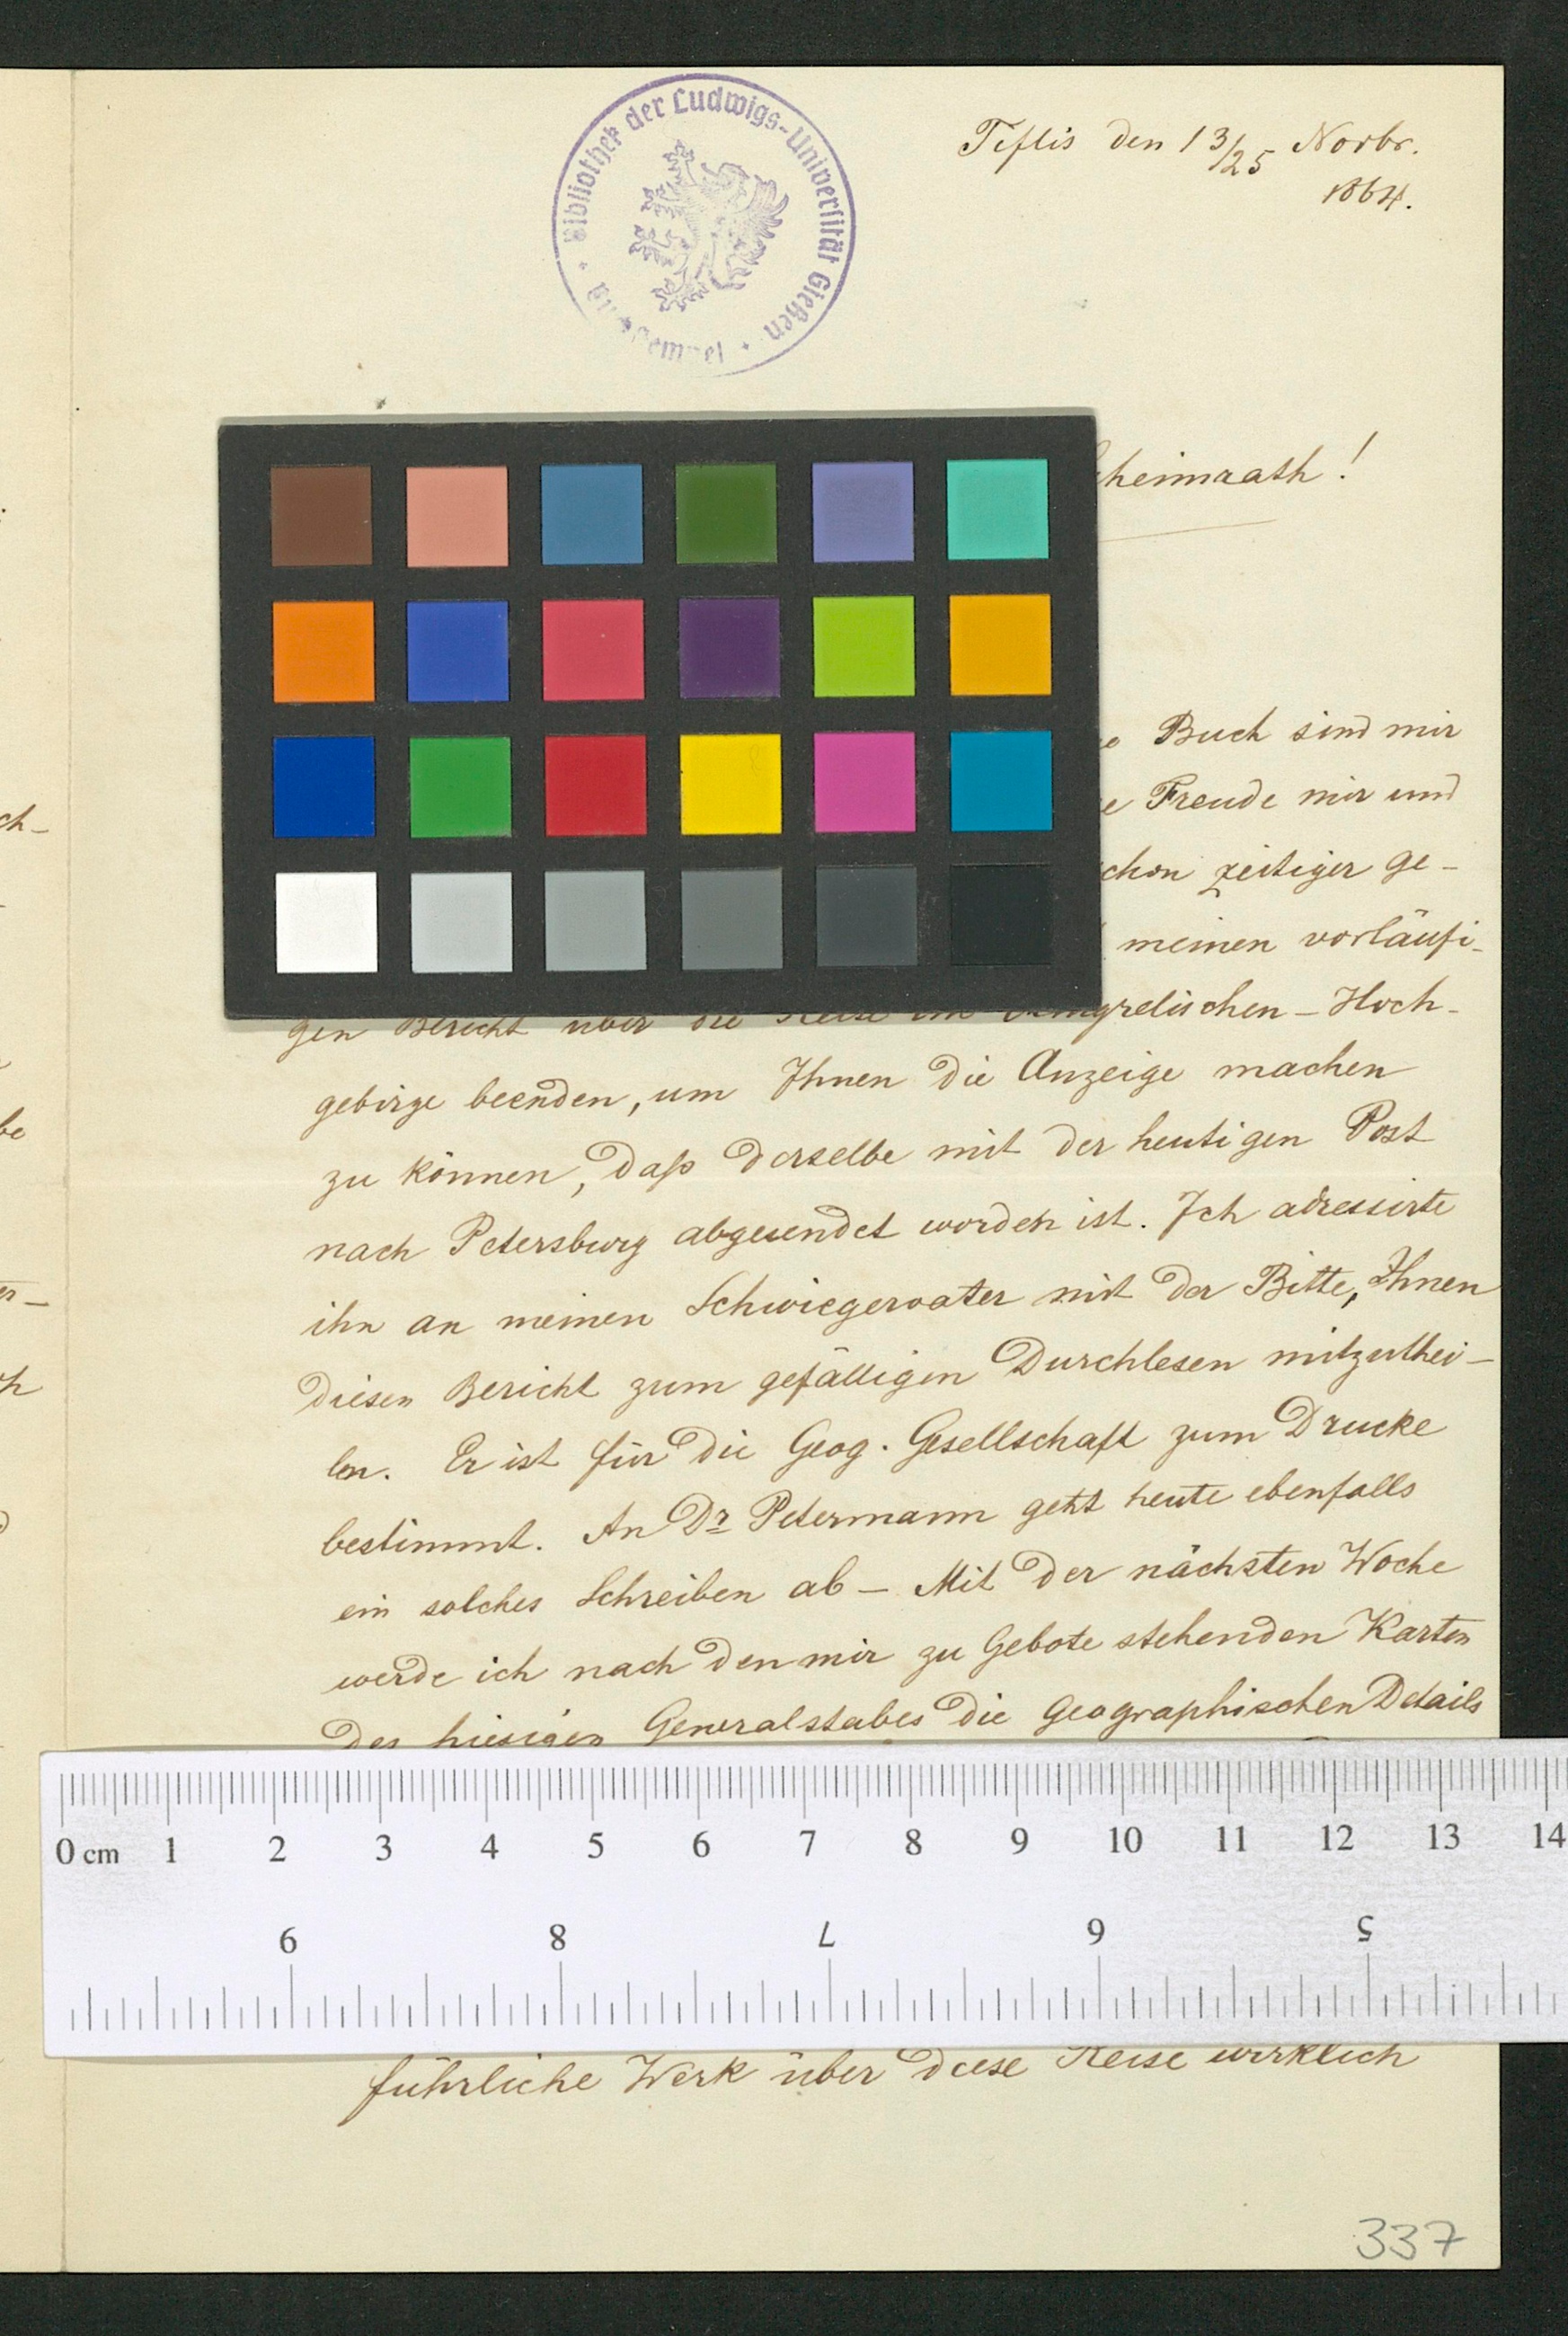 Bibliothek der Ludwigs-Universität Gießen
Tiflis den 13/25 Novbr.
1864.
heimrath!
Buch sind mir
e Freude mir und
chon zeitiger ge-
meinen vorläufi-
gen Bericht über die Reise im Mingrelischen-Hoch-
gebirge beenden, um Ihnen die Anzeige machen
zu können, daß derselbe mit der heutigen Post
nach Petersburg abgesendet worden ist. Ich adressirte
ihn an meinen Schwiegervater mit der Bitte, Ihnen
diesen Bericht zum gefälligen Durchlesen mitzuthei-
len. Er ist für die Geog. Gesellschaft zum Drucke
bestimmt. An Dr Petermann geht heute ebenfalls
ein solches Schreiben ab - Mit der nächsten Woche
werde ich nach den mir zu Gebote stehenden Karten
des hiesigen Generalstabes die geographischen Details
0 cm 1 2 3 4 5 6 7 8 9 10 11 12 13 14
9 8 7 6 5
führliche Werk über diese Reise wirklich
337
ch-
be